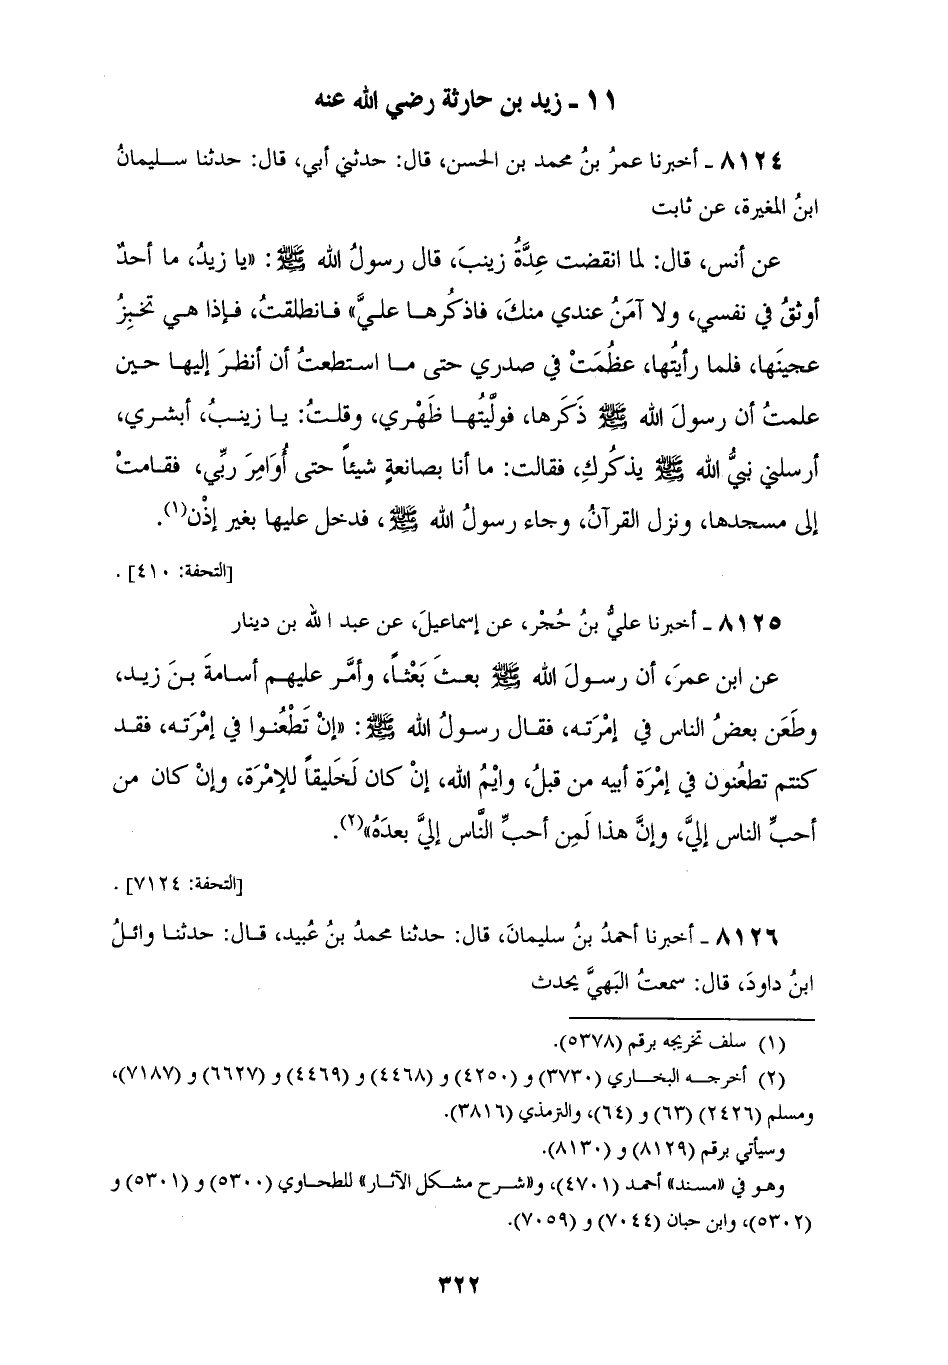 ١١ - زيد بن حارثة رضي الله عنه
٨١٢٤ - أخبرنا عمرُ بنُ محمد بن الحسن، قال: حدثني أبي، قال: حدثنا سليمانُ
ابنُ المغيرة، عن ثابت
عن أنس، قال: لما انقضت عِدَّةُ زينبَ، قال رسولُ الله ﷺ: «يا زيدُ، ما أحدٌ
أوثقُ في نفسي، ولا آمَنُ عندي منكَ، فاذكُرها عليَّ» فانطلقتُ، فإذا هي تخبِزُ
عجينَها، فلما رأيتُها، عظُمَتْ في صدري حتى ما استطعتُ أن أنظرَ إليها حين
علمتُ أن رسولَ الله ﷺ ذَكَرها، فولَّيتُها ظَهْري، وقلتُ: يا زينبُ، أبشري،
أرسلني نبيُّ الله ﷺ يذكُركِ، فقالت: ما أنا بصانعةٍ شيئاً حتى أُوَامِرَ ربِّي، فقامتْ
إلى مسجدها، ونزل القرآنُ، وجاء رسولُ الله ﷺ، فدخل عليها بغير إذْن(١).
[التحفة: ٤١٠] .
٨١٢٥ - أخبرنا عليُّ بنُ حُجْر، عن إسماعيلَ، عن عبد الله بن دينار
عن ابن عمرَ، أن رسولَ الله ﷺ بعثَ بَعْثاً، وأمَّر عليهم أسامةَ بنَ زيد،
وطَعَن بعضُ الناس في إمْرَته، فقال رسولُ الله ﷺ: «إنْ تَطْعُنوا في إمْرَته، فقد
كنتم تطعُنون في إمْرَة أبيه من قبلُ، وايْمُ الله، إنْ كان لَخَليقاً للإمْرَة، وإنْ كان من
أحبِّ الناس إليَّ، وإنَّ هذا لَمِن أحبِّ النَّاس إليَّ بعدَهُ»(٢).
[التحفة: ٧١٢٤] .
٨١٢٦ - أخبرنا أحمدُ بنُ سليمانَ، قال: حدثنا محمدُ بنُ عُبيد، قال: حدثنا وائلُ
ابنُ داودَ، قال: سمعتُ البَهيَّ يحدث
(١) سلف تخريجه برقم (٥٣٧٨).
(٢) أخرجه البخاري (٣٧٣٠) و (٤٢٥٠) و (٤٤٦٨) و (٤٤٦٩) و (٦٦٢٧) و (٧١٨٧)،
ومسلم (٢٤٢٦) (٦٣) و (٦٤)، والترمذي (٣٨١٦).
وسيأتي برقم (٨١٢٩) و (٨١٣٠).
وهو في «مسند» أحمد (٤٧٠١)، و«شرح مشكل الآثار» للطحاوي (٥٣٠٠) و (٥٣٠١) و
(٥٣٠٢)، وابن حبان (٧٠٤٤) و (٧٠٥٩).
٣٢٢